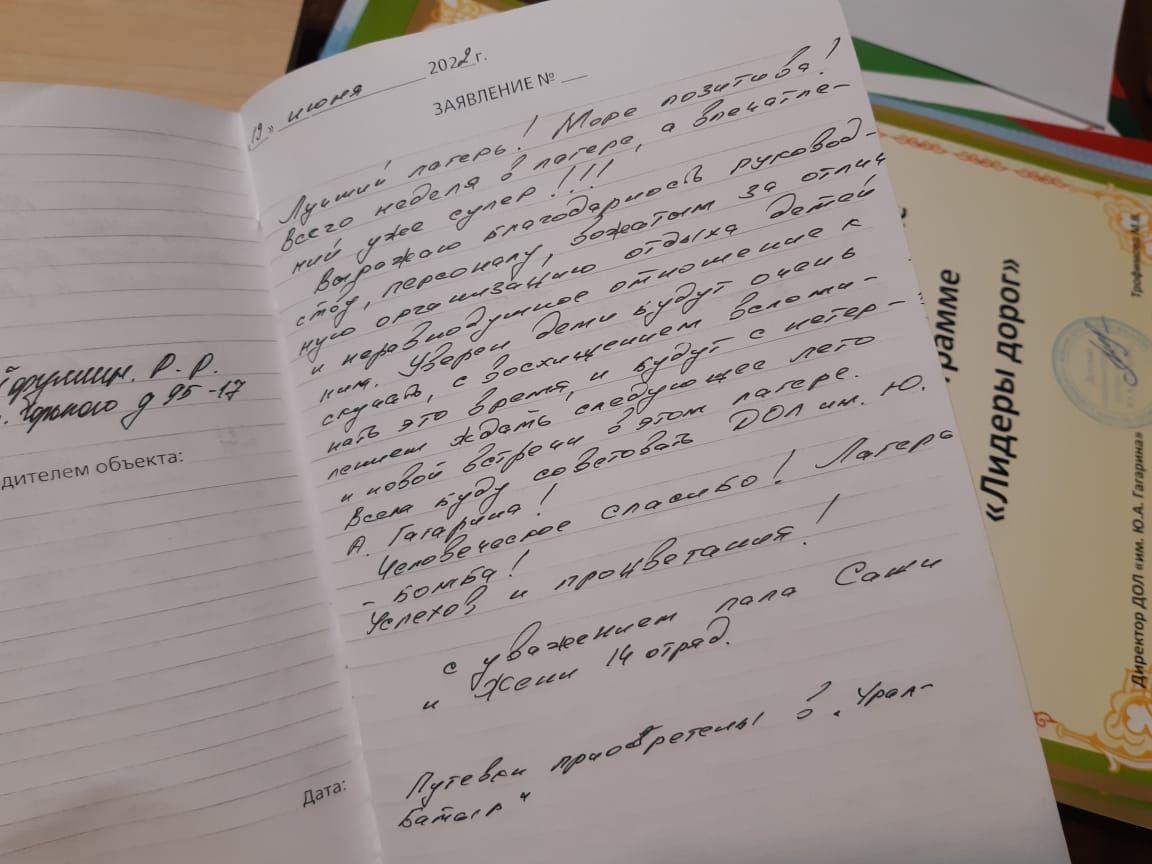 Р. Р.
д 95-17
дителем объекта:
Дата:
19» июня 2022 г.
ЗАЯВЛЕНИЕ №
Лучший лагерь! Море позитива!
всего неделя в лагере, а впечатле-
ний уже супер!!!
Выражаю благодарность руковод-
ству, персоналу, вожатым за отлич
ную организацию отдыха детей
и неравнодушное отношение к
ним. Уверен дети будут очень
скучать, с восхищением вспоми-
нать это время, и будут с нетер-
пением ждать следующее лето
и новой встречи в этом лагере.
Всем буду советовать ДОЛ им. Ю.
А. Гагарина!
Человеческое спасибо! Лагерь
- бомба!
Успехов и процветания!
с уважением папа Саши
и Жени 14 отряд.
Путевки приобретены в „Урал-
батыр"
грамме
«Лидеры дорог»
Директор ДОЛ «им. Ю.А. Гагарина»
Трофимова М.В.